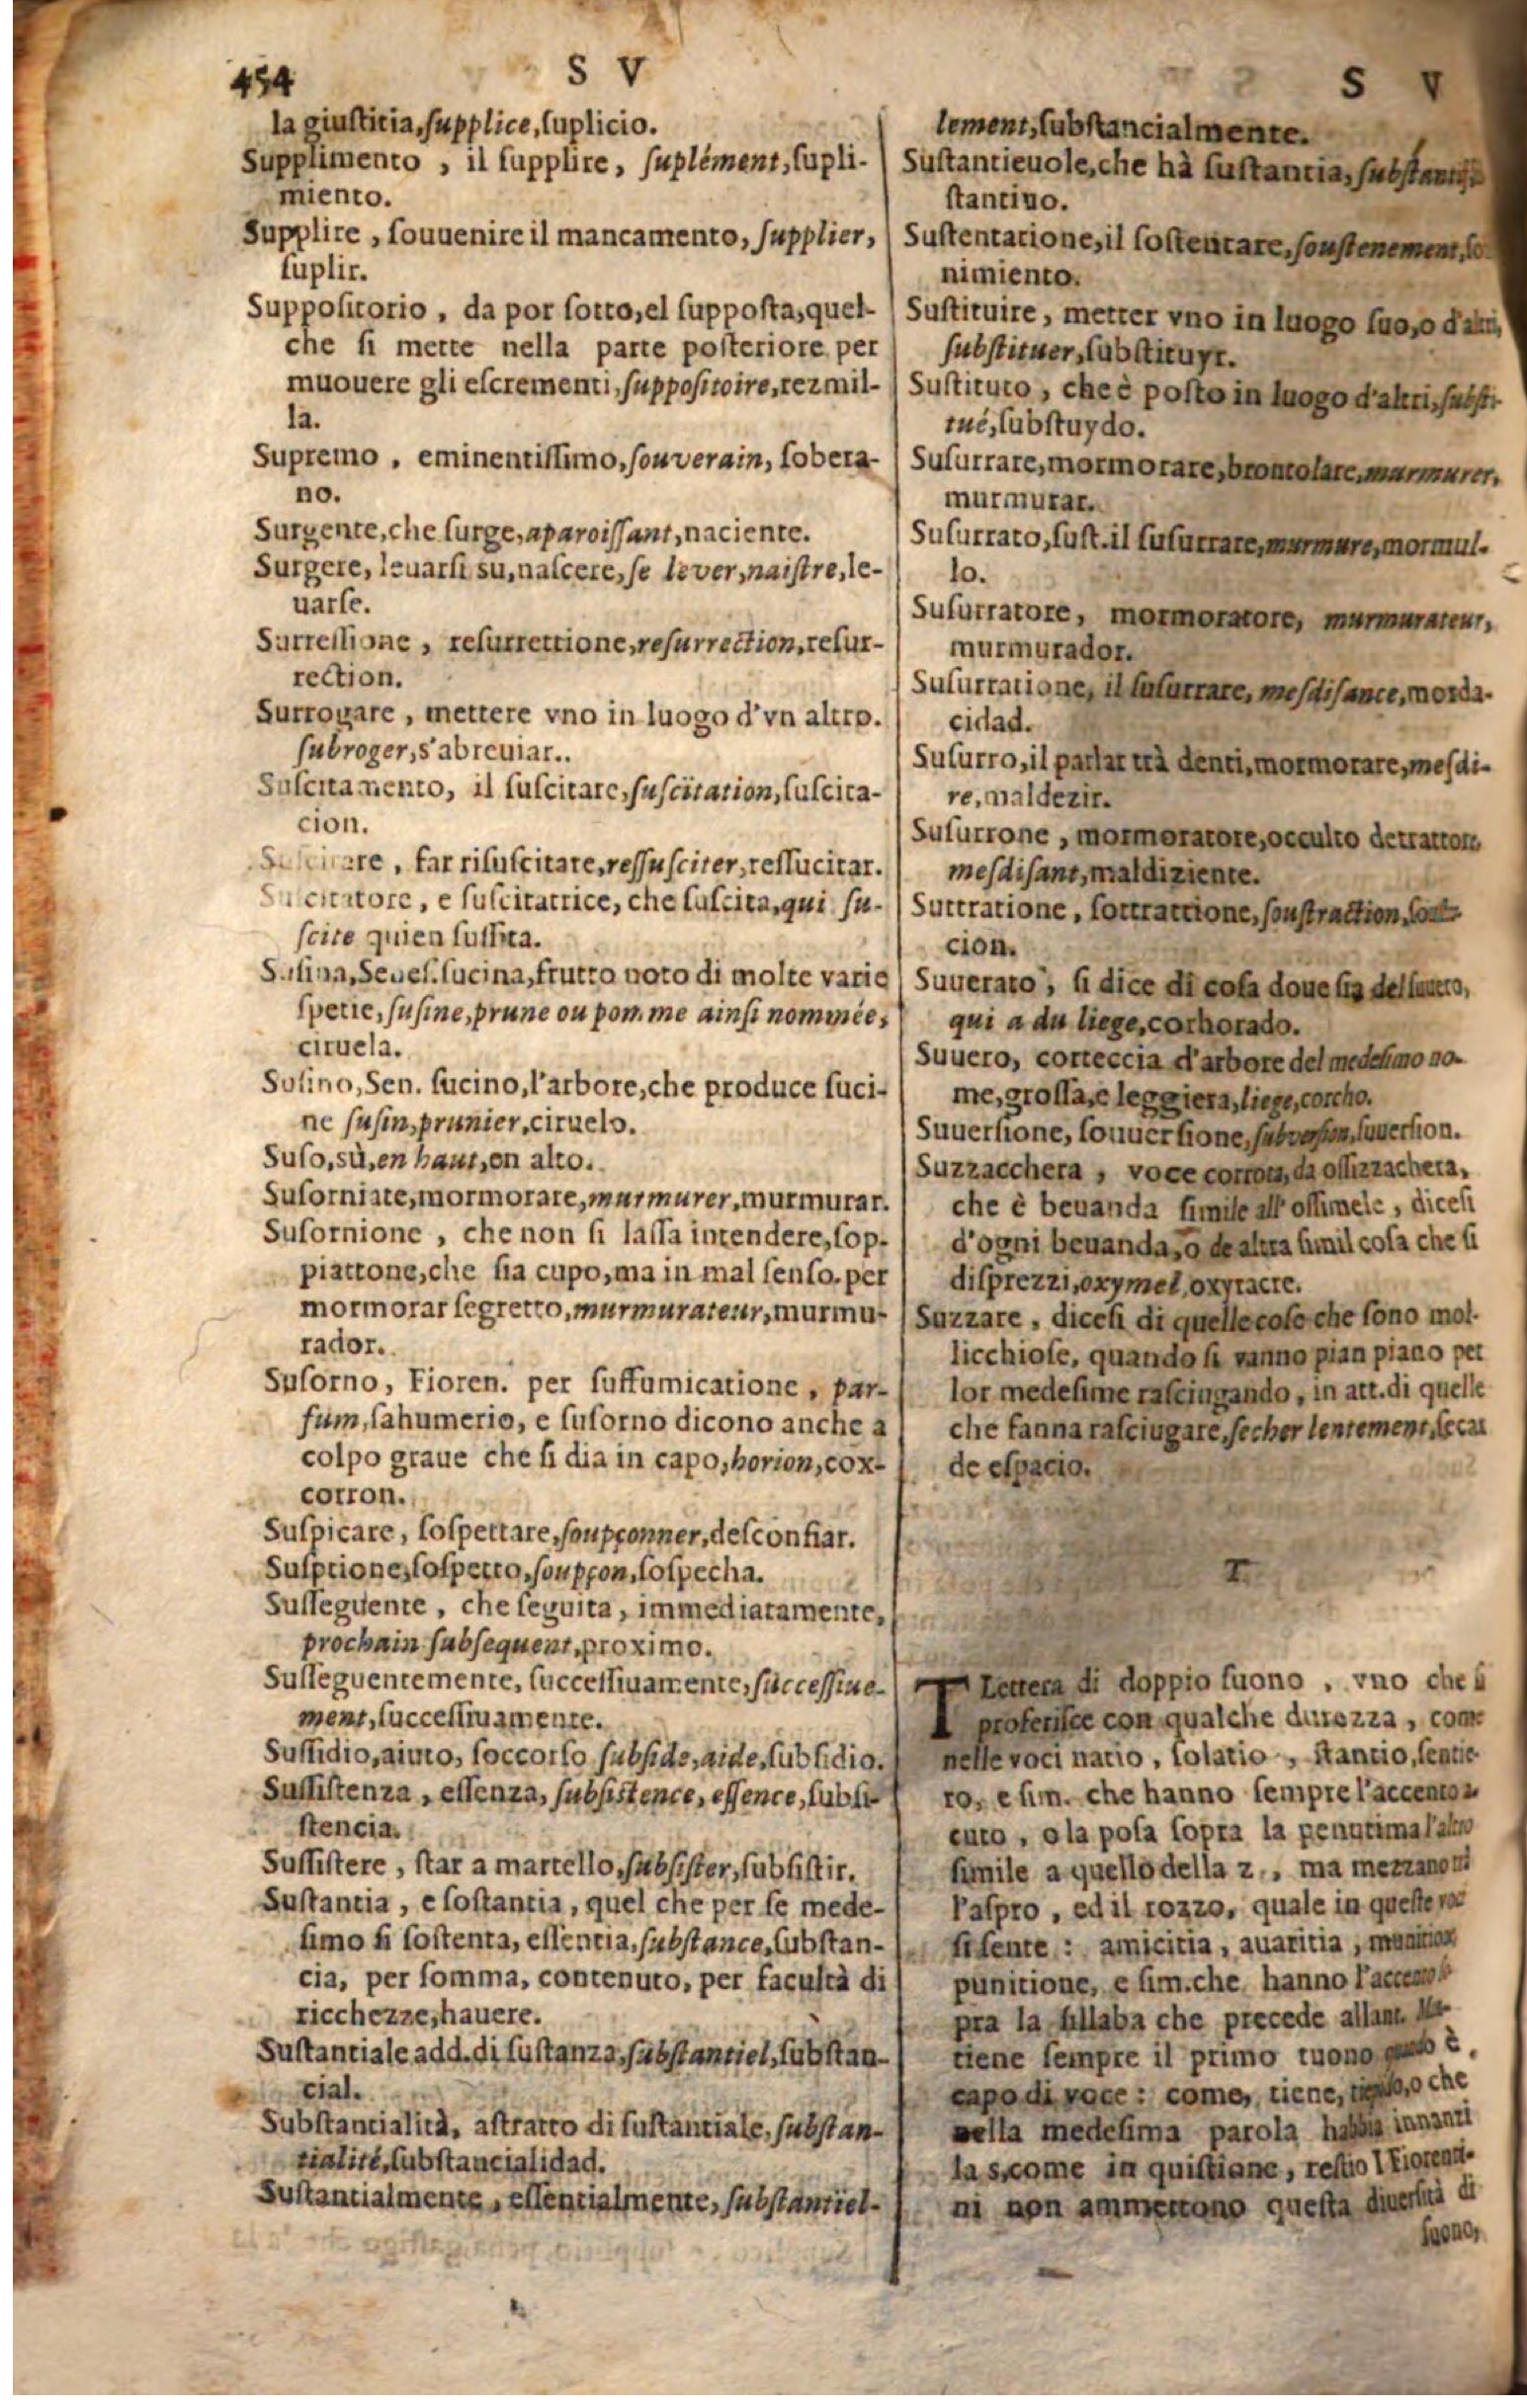 454
S V
S V
la giuſtitia,ſupplice,ſuplicio.
Supplimento , il ſupplire, ſuplément,ſupli-
miento.
Supplire , ſouuenire il mancamento, ſupplier,
ſuplir.
Suppoſitorio , da por ſotto,el ſuppoſta,quel-
che ſi mette nella parte poſteriore per
muouere gli eſcrementi,ſuppoſitoire,rezmil-
la.
Supremo , eminentiſſimo,ſouverain, ſobera-
no.
Surgente,che ſurge,aparoiſſant,naciente.
Surgere, leuarſi su,naſcere,ſe lever,naiſtre,le-
uarſe.
Surreſſione , reſurrettione,reſurrection,reſur-
rection.
Surrogare , mettere vno in luogo d'vn altro.
ſubroger,s'abreuiar..
Suſcitamento, il ſuſcitare,ſuſcïtation,ſuſcita-
cion.
Suſcitare , far riſuſcitare,reſſuſciter,reſſucitar.
Suſcitatore , e ſuſcitatrice, che ſuſcita,qui ſu-
ſcite quien ſuſſita.
Suſina,Seneſ.ſucina,frutto noto di molte varie
ſpetie,ſuſine,prune ou pomme ainſi nommée,
ciruela.
Suſino,Sen. ſucino,l'arbore,che produce ſuci-
ne ſuſin,prunier,ciruelo.
Suſo,sù,en haut,en alto.
Suſorniate,mormorare,murmurer,murmurar.
Suſornione , che non ſi laſſa intendere,ſop-
piattone,che ſia cupo,ma in mal ſenſo.per
mormorar ſegretto,murmurateur,murmu-
rador.
Suſorno, Fioren. per ſuffumicatione , par-
fum,ſahumerio, e ſuſorno dicono anche a
colpo graue che ſi dia in capo,horion,cox-
corron.
Suſpicare, ſoſpettare,ſoupçonner,deſconfiar.
Suſptione,ſoſpetto,ſoupçon,ſoſpecha.
Suſſeguente , che ſeguita, immediatamente,
prochain ſubſequent,proximo.
Suſſeguentemente, ſucceſſiuamente,ſucceſſiue-
ment,ſucceſſiuamente.
Suſſidio,aiuto, ſoccorſo ſubſide,aide,ſubſidio.
Suſſiſtenza , eſſenza, ſubſistence, eſſence,ſubſi-
ſtencia.
Suſſiſtere , ſtar a martello,ſubſiſter,ſubſiſtir.
Suſtantia , e ſoſtantia , quel che per ſe mede-
ſimo ſi ſoſtenta, eſſentia,ſubſtance,ſubſtan-
cia, per ſomma, contenuto, per facultà di
ricchezze,hauere.
Suſtantiale add.di ſuſtanza,ſubſtantiel,ſubſtan-
cial.
Subſtantialità, aſtratto di ſuſtantiale,ſubſtan-
tialité,ſubſtancialidad.
Suſtantialmente , eſſentialmente, ſubſtantiel-
lement,ſubſtancialmente.
Suſtantieuole,che hà ſuſtantia,
ſtantiuo.
Suſtentatione,il ſoſtentare,ſouſtenement,ſo
nimiento.
Suſtituire, metter vno in luogo ſuo,o d'altri,
ſubſtituer,ſubſtituyr.
Suſtituto , che è poſto in luogo d'altri,ſubſti-
tué,ſubſtuydo.
Suſurrare,mormorare,brontolare,murmurer,
murmurar.
Suſurrato,ſuſt.il ſuſurrare,murmure,mormul-
lo.
Suſurratore, mormoratore, murmurateur,
murmurador.
Suſurratione, il ſuſurrare, meſdiſance,morda-
cidad.
Suſurro,il parlar trà denti,mormorare,meſdi-
re,maldezir.
Suſurrone , mormoratore,occulto detrattore
meſdiſant,maldiziente.
Suttratione , ſottrattione,ſouſtraction,
cion.
Suuerato , ſi dice di coſa doue ſia del ſuuero,
qui a du liege,corhorado.
Suuero, corteccia d'arbore del medeſimo no-
me,groſſa,e leggiera,liege,corcho.
Suuerſione, ſouuerſione,ſubverſion,ſuuerſion.
Suzzacchera , voce corrota,da oſſizzachera,
che è beuanda ſimile all' oſſimele , diceſi
d'ogni beuanda,o de altra ſimil coſa che ſi
diſprezzi,oxymel,oxytacre.
Suzzare , diceſi di quelle coſe che ſono mol-
licchioſe, quando ſi vanno pian piano per
lor medeſime raſciugando , in att.di quelle
che fanna raſciugare,ſecher lentement,ſecar
de eſpacio.
T
T Lettera di doppio ſuono , vno che ſi
proferiſce con qualche durezza , come
nelle voci natio , ſolatio , ſtantio,ſentie-
ro, e ſim. che hanno ſempre l'accento a-
cuto , o la poſa ſopra la penutima l'altro
ſimile a quello della z , ma mezzano trì
l'aſpro , ed il rozzo, quale in queſte voc
ſi ſente : amicitia , auaritia , munitione
punitione, e ſim.che hanno l'accento ſo-
pra la ſillaba che precede allant. Man-
tiene ſempre il primo tuono quando è
capo di voce : come, tiene, tiendo,o che
nella medeſima parola habbia innanzi
la s,come in quiſtione , reſtio I Fiorenti-
ni non ammettono queſta diuerſità di
ſuono,